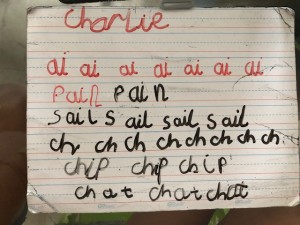 Charlie
ai ai ai ai ai ai ai
Pain pain
sails ail sail sail
ch ch ch ch ch ch ch
chip chip chip
chat chat chat